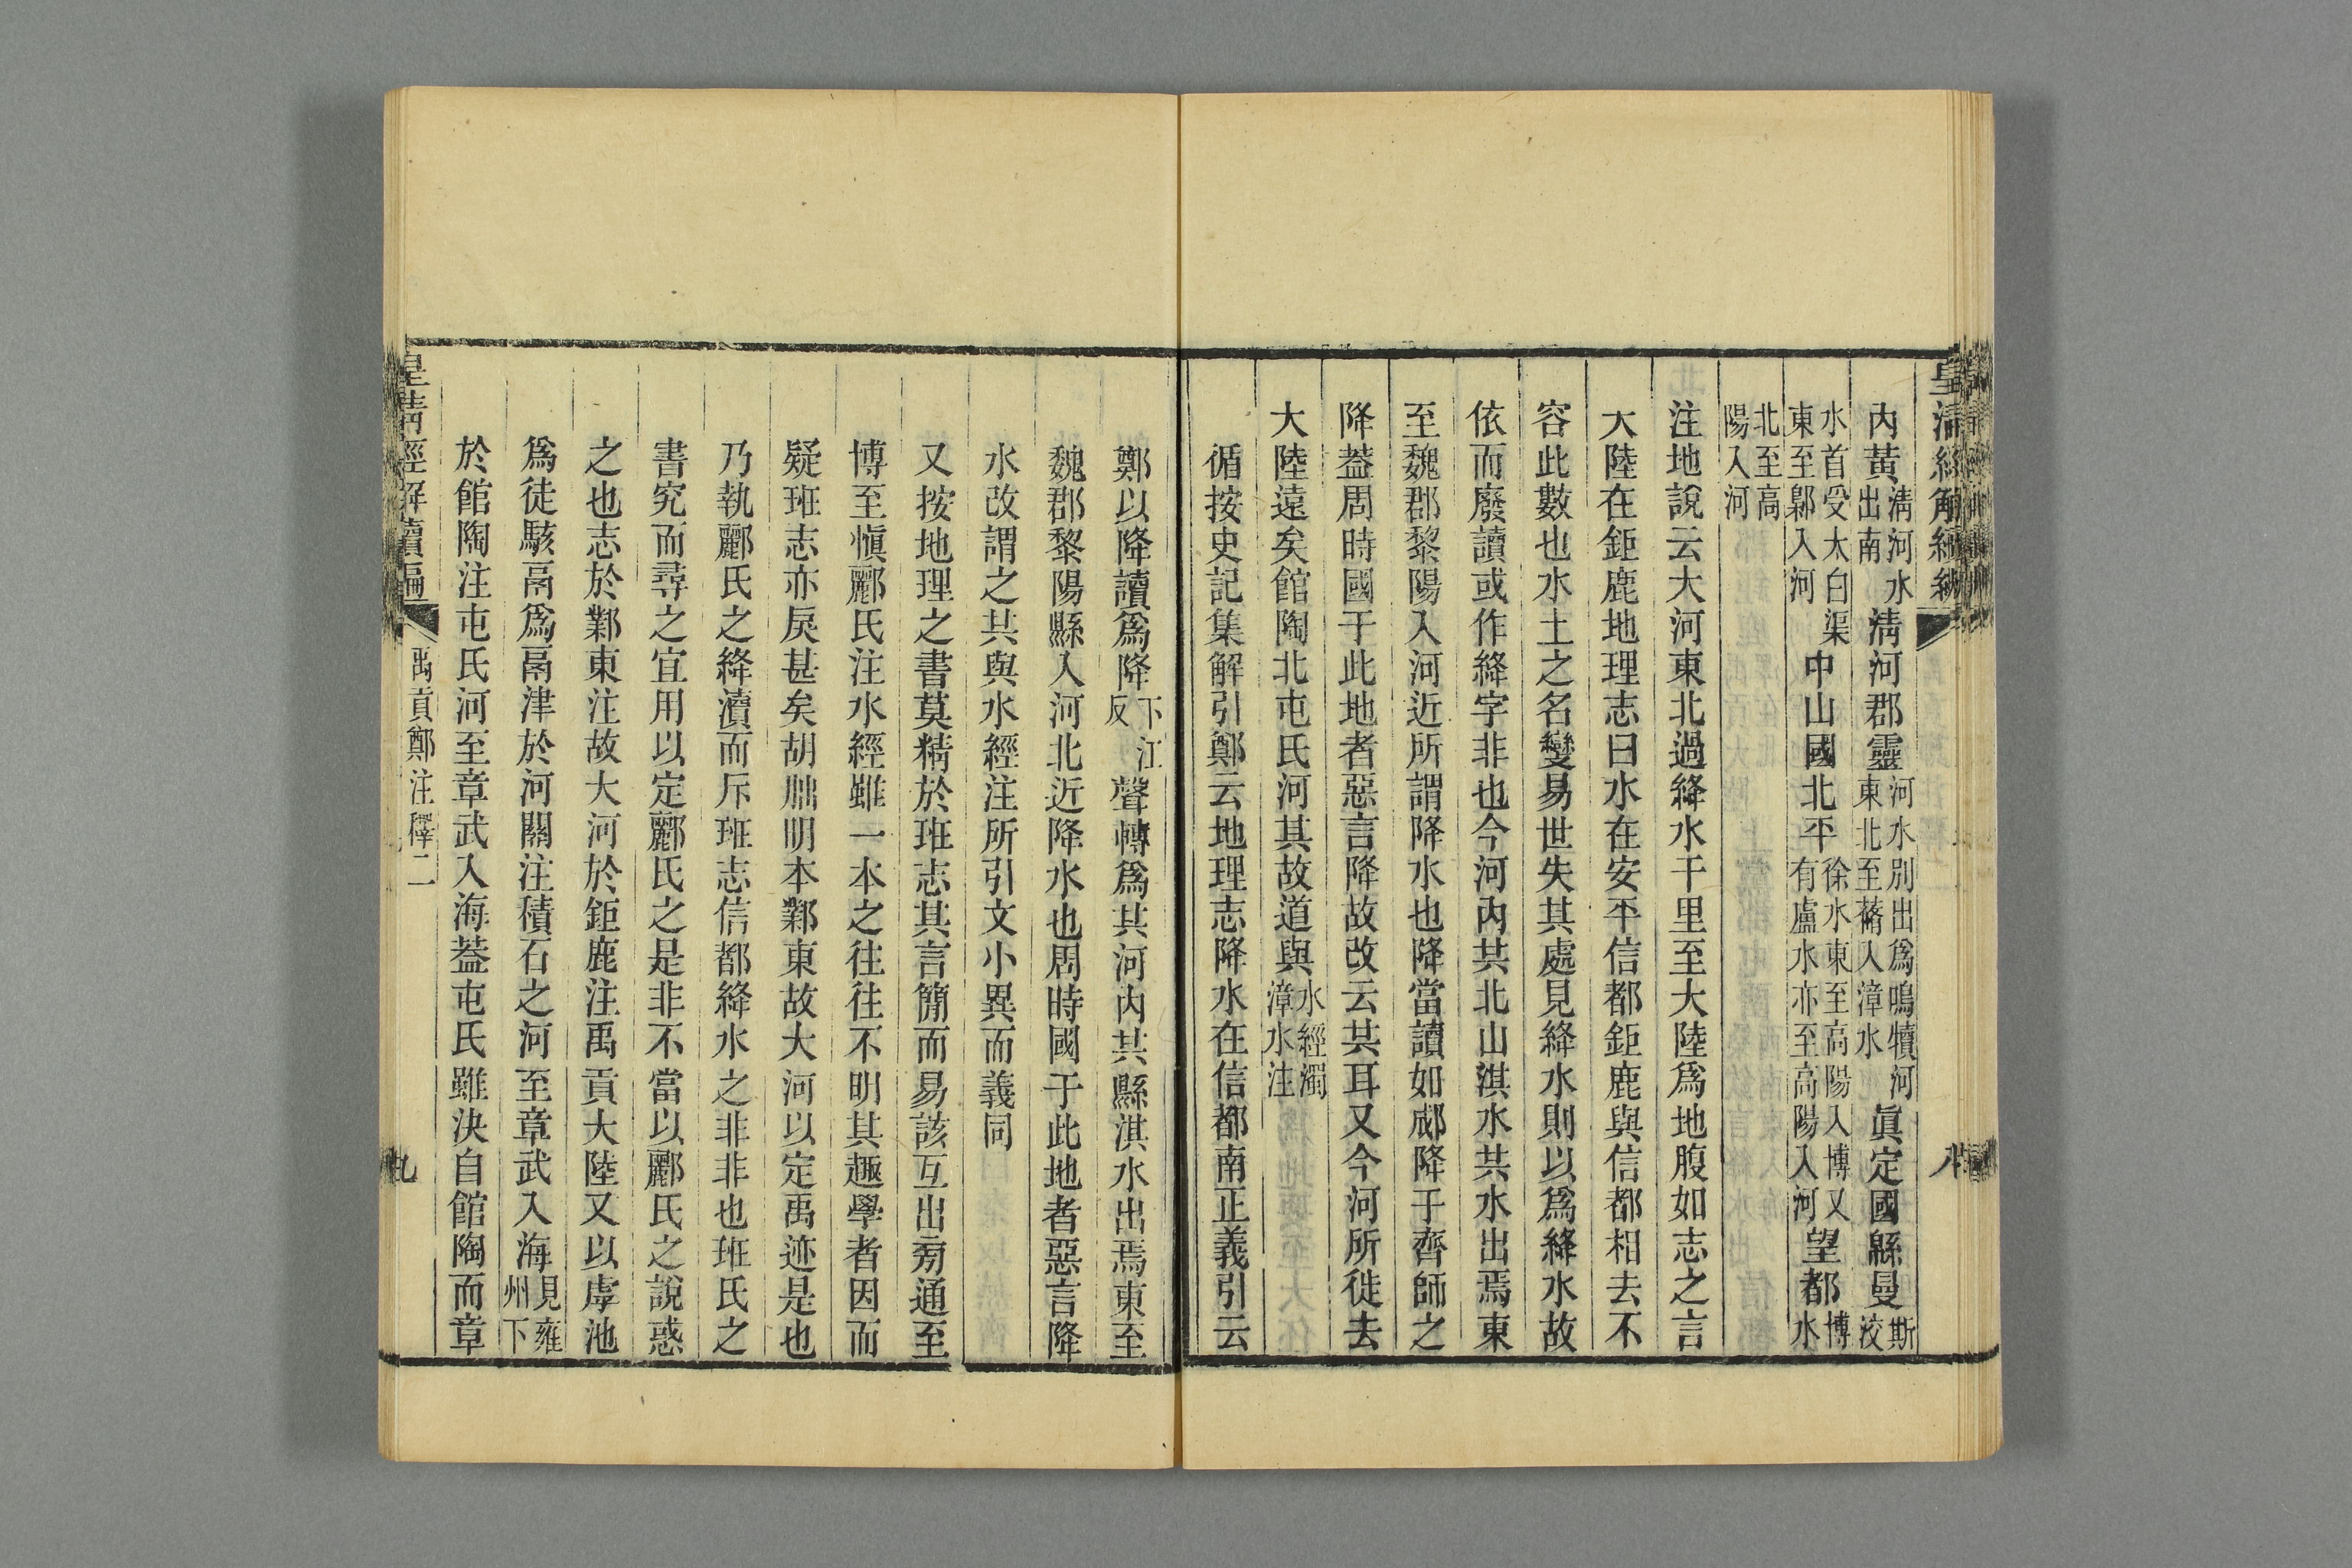 內黃淸河水出南淸河郡靈河水別出爲鳴犢河東北至蓨入漳水眞定國緜曼斯洨
水首受太白渠東至鄡入河中山國北平徐水東至高陽入博又有盧水亦至高陽入河望都博水
北至高陽入河
注地說云大河東北過絳水千里至大陸爲地腹如志之言
大陸在鉅鹿地理志曰水在安平信都鉅鹿與信都相去不
容此數也水土之名變易世失其處見絳水則以爲絳水故
依而廢讀或作絳字非也今河內共北山淇水共水出焉東
至魏郡黎陽入河近所謂降水也降當讀如郕降于齊師之
降蓋周時國于此地者惡言降故改云共耳又今河所徙去
大陸遠矣館陶北屯氏河其故道與水經濁漳水注
循按史記集解引鄭云地理志降水在信都南正義引云
鄭以降讀爲降下江反聲轉爲共河內共縣淇水出焉東至
魏郡黎陽縣入河北近降水也周時國于此地者惡言降
水改謂之共與水經注所引文小異而義同
又按地理之書莫精於班志其言簡而易該互出旁通至
博至愼酈氏注水經雖一本之往往不明其趣學者因而
疑班志亦戾甚矣胡朏明本鄴東故大河以定禹迹是也
乃執酈氏之絳瀆而斥班志信都絳水之非非也班氏之
書究而尋之宜用以定酈氏之是非不當以酈氏之說惑
之也志於鄴東注故大河於鉅鹿注禹貢大陸又以虖池
爲徒駭鬲爲鬲津於河關注積石之河至章武入海見雍州下
於館陶注屯氏河至章武入海蓋屯氏雖決自館陶而章
皇淸經解續編
禹貢鄭注釋二
九